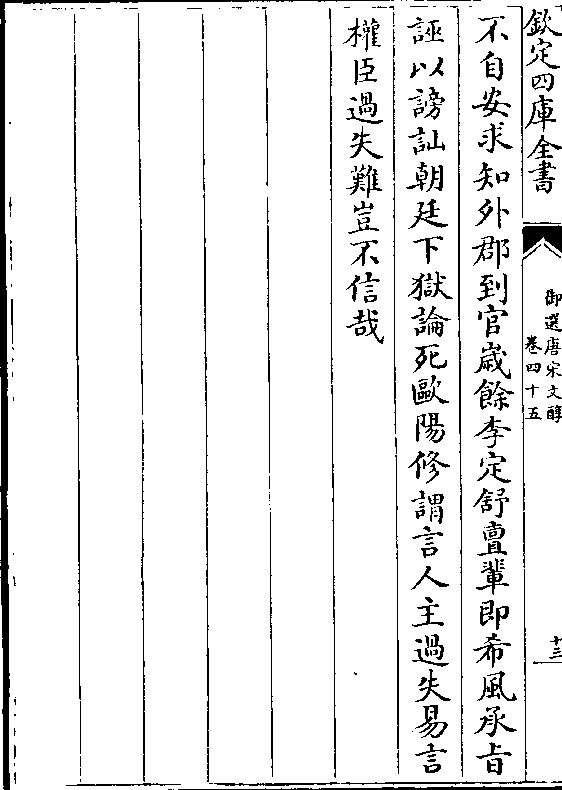 欽定四庫全書
御選唐宋文醇
卷四十五
十三
不自安求知外郡到官歲餘李定舒亶輩即希風承旨
誣以謗訕朝廷下獄論死歐陽修謂言人主過失易言
權臣過失難豈不信哉